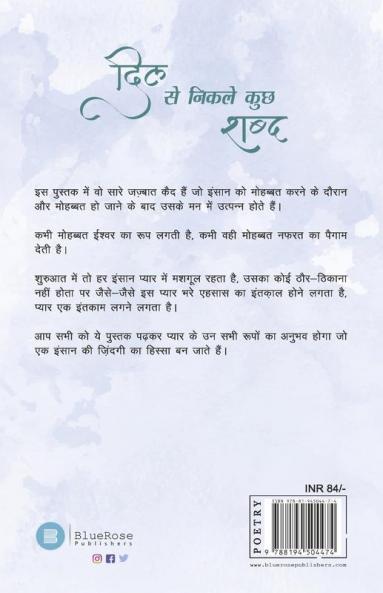 दिल
से निकले कुछ
शब्द
इस पुस्तक में वो सारे जज़्बात कैद हैं जो इंसान को मोहब्बत करने के दौरान
और मोहब्बत हो जाने के बाद उसके मन में उत्पन्न होते हैं।
कभी मोहब्बत ईश्वर का रूप लगती है, कभी वही मोहब्बत नफरत का पैगाम
देती है।
शुरुआत में तो हर इंसान प्यार में मशगूल रहता है, उसका कोई ठौर–ठिकाना
नहीं होता पर जैसे–जैसे इस प्यार भरे एहसास का इंतक़ाल होने लगता है,
प्यार एक इंतकाम लगने लगता है।
आप सभी को ये पुस्तक पढ़कर प्यार के उन सभी रूपों का अनुभव होगा जो
एक इंसान की ज़िंदगी का हिस्सा बन जाते हैं।
INR 84/-
ISBN 978-81-945044-7-4
POETRY
9 788194 504474
www.bluerosepublishers.com
B
BlueRose
Publishers